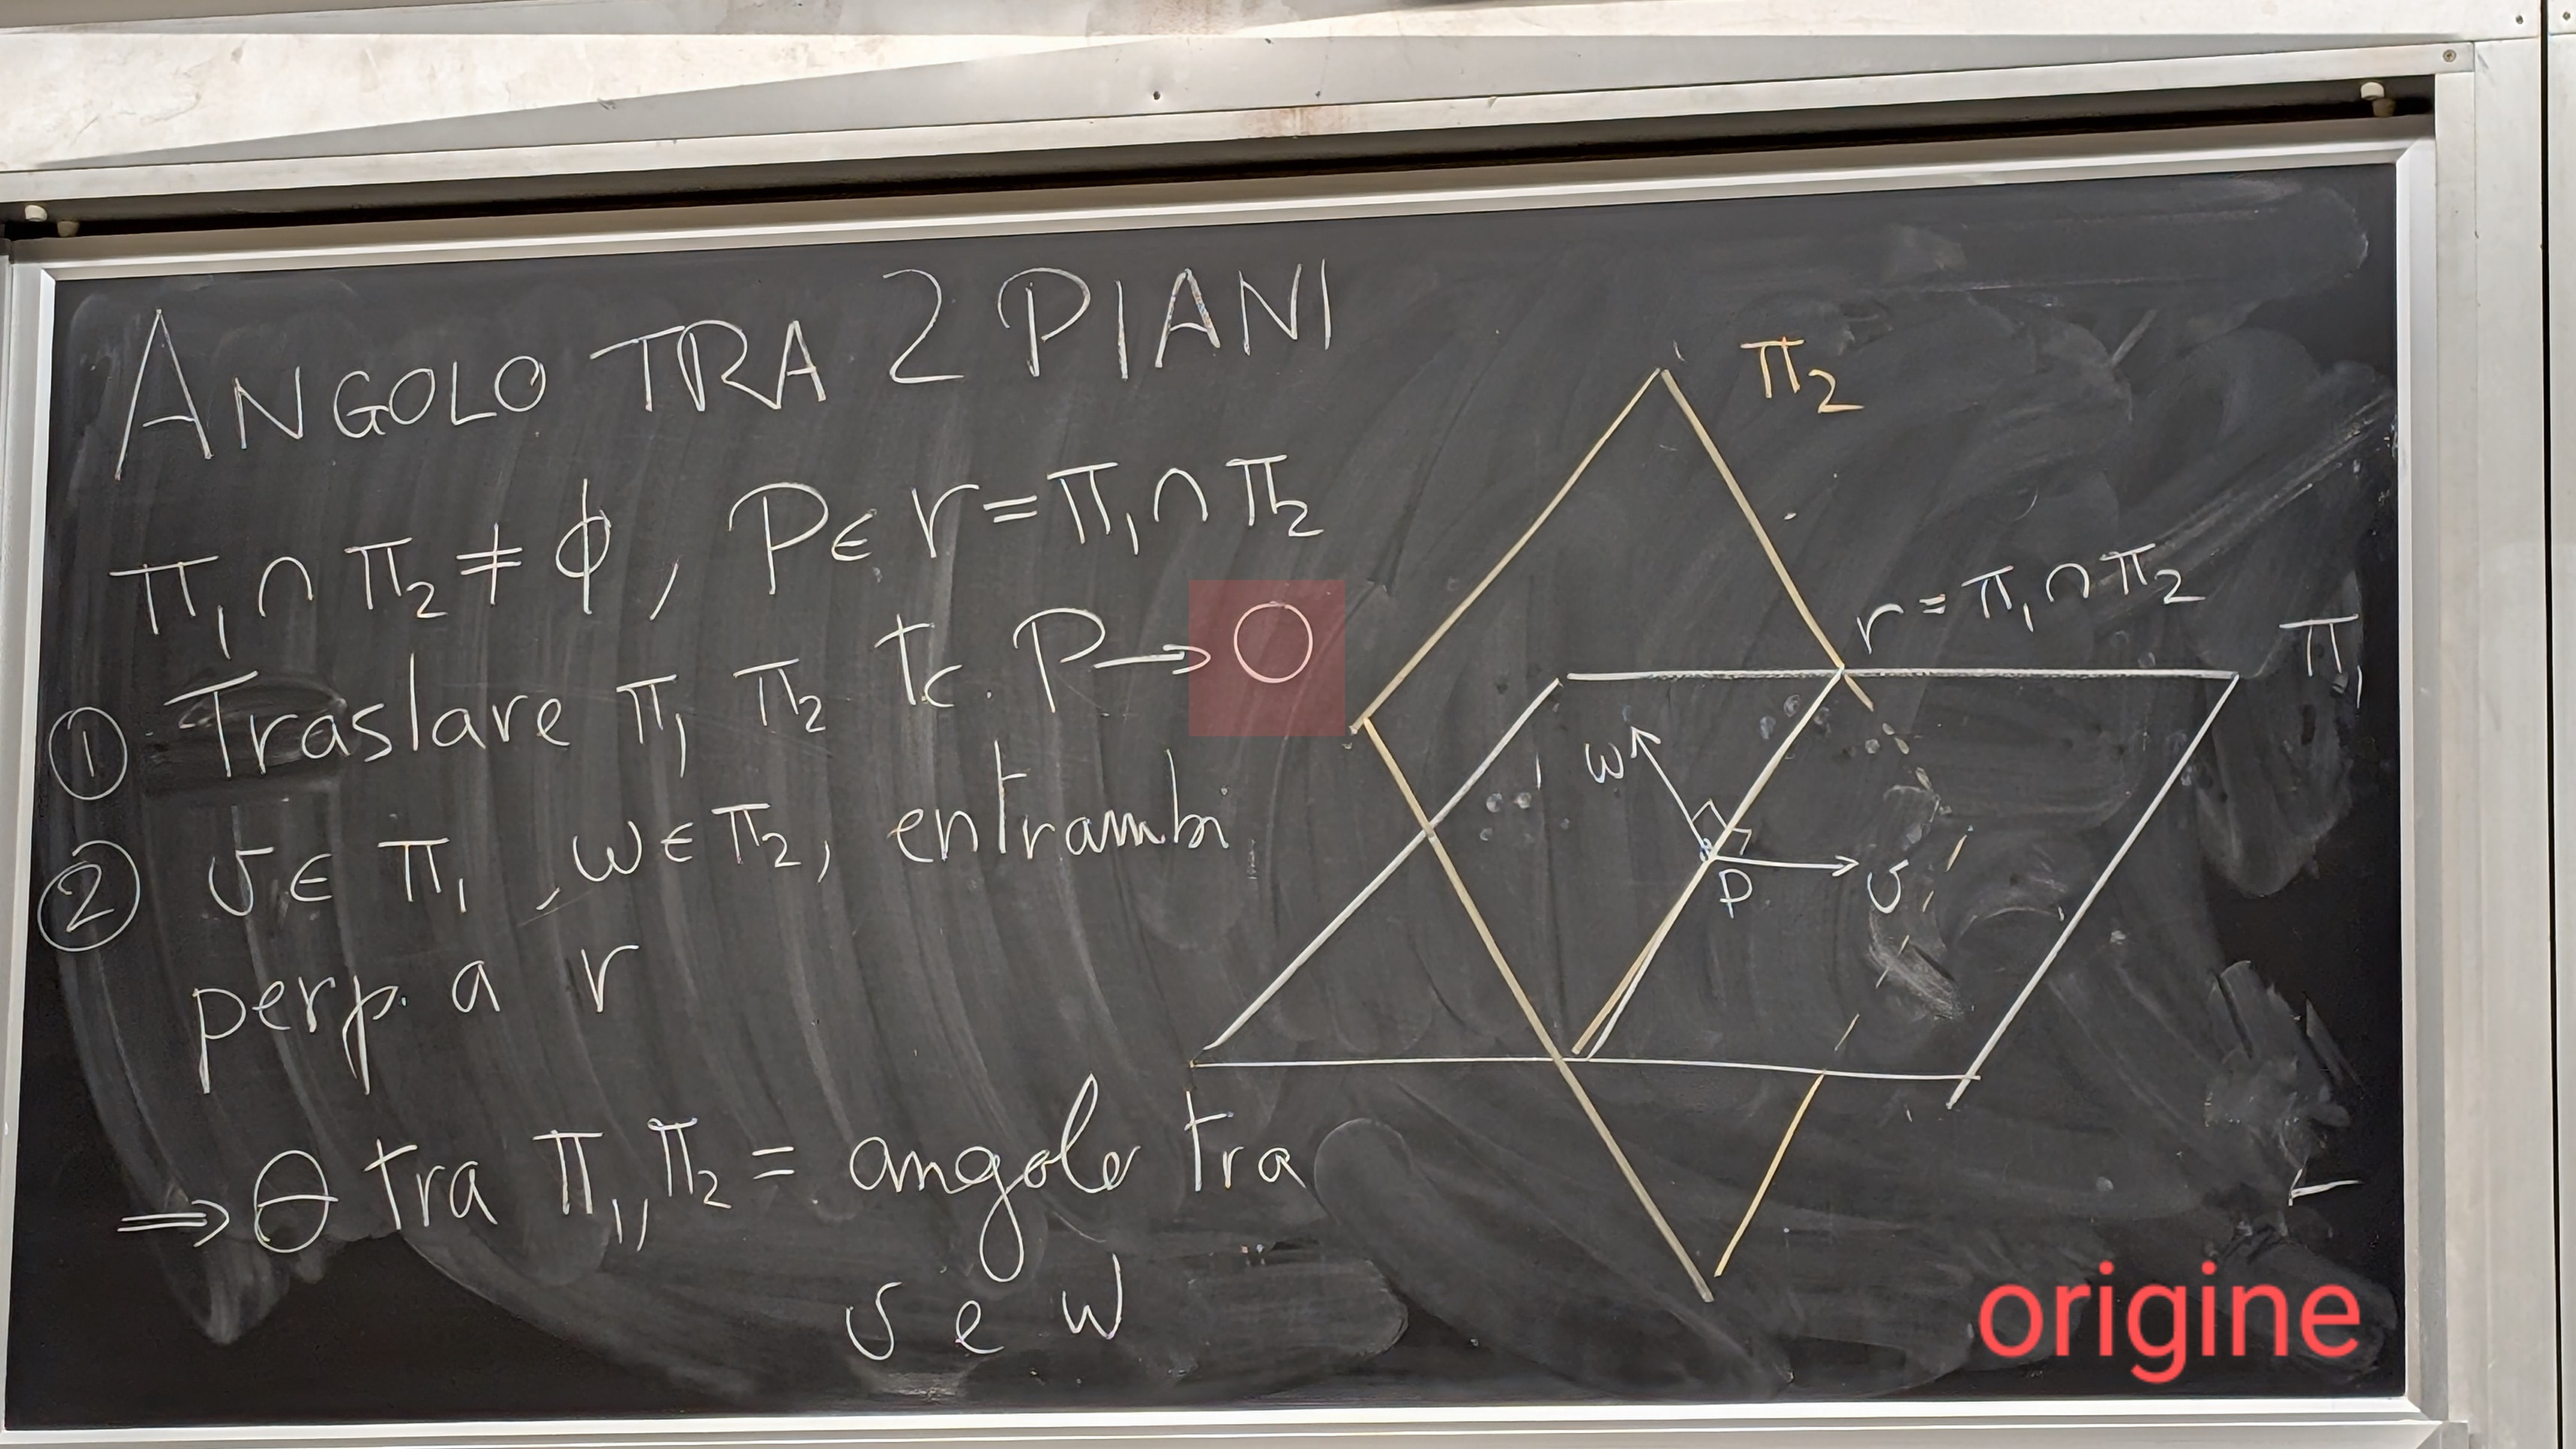 ANGOLO TRA 2 PIANI
π₁ ∩ π₂ ≠ ϕ, P ∈ r = π₁ ∩ π₂
① Traslare π₁ π₂ tc. P → O
② v ∈ π₁, w ∈ π₂, entrambi
perp. a r
⇒ θ tra π₁, π₂ = angolo tra
v e w
π₂
r = π₁ ∩ π₂
π₁
w
P
v
origine